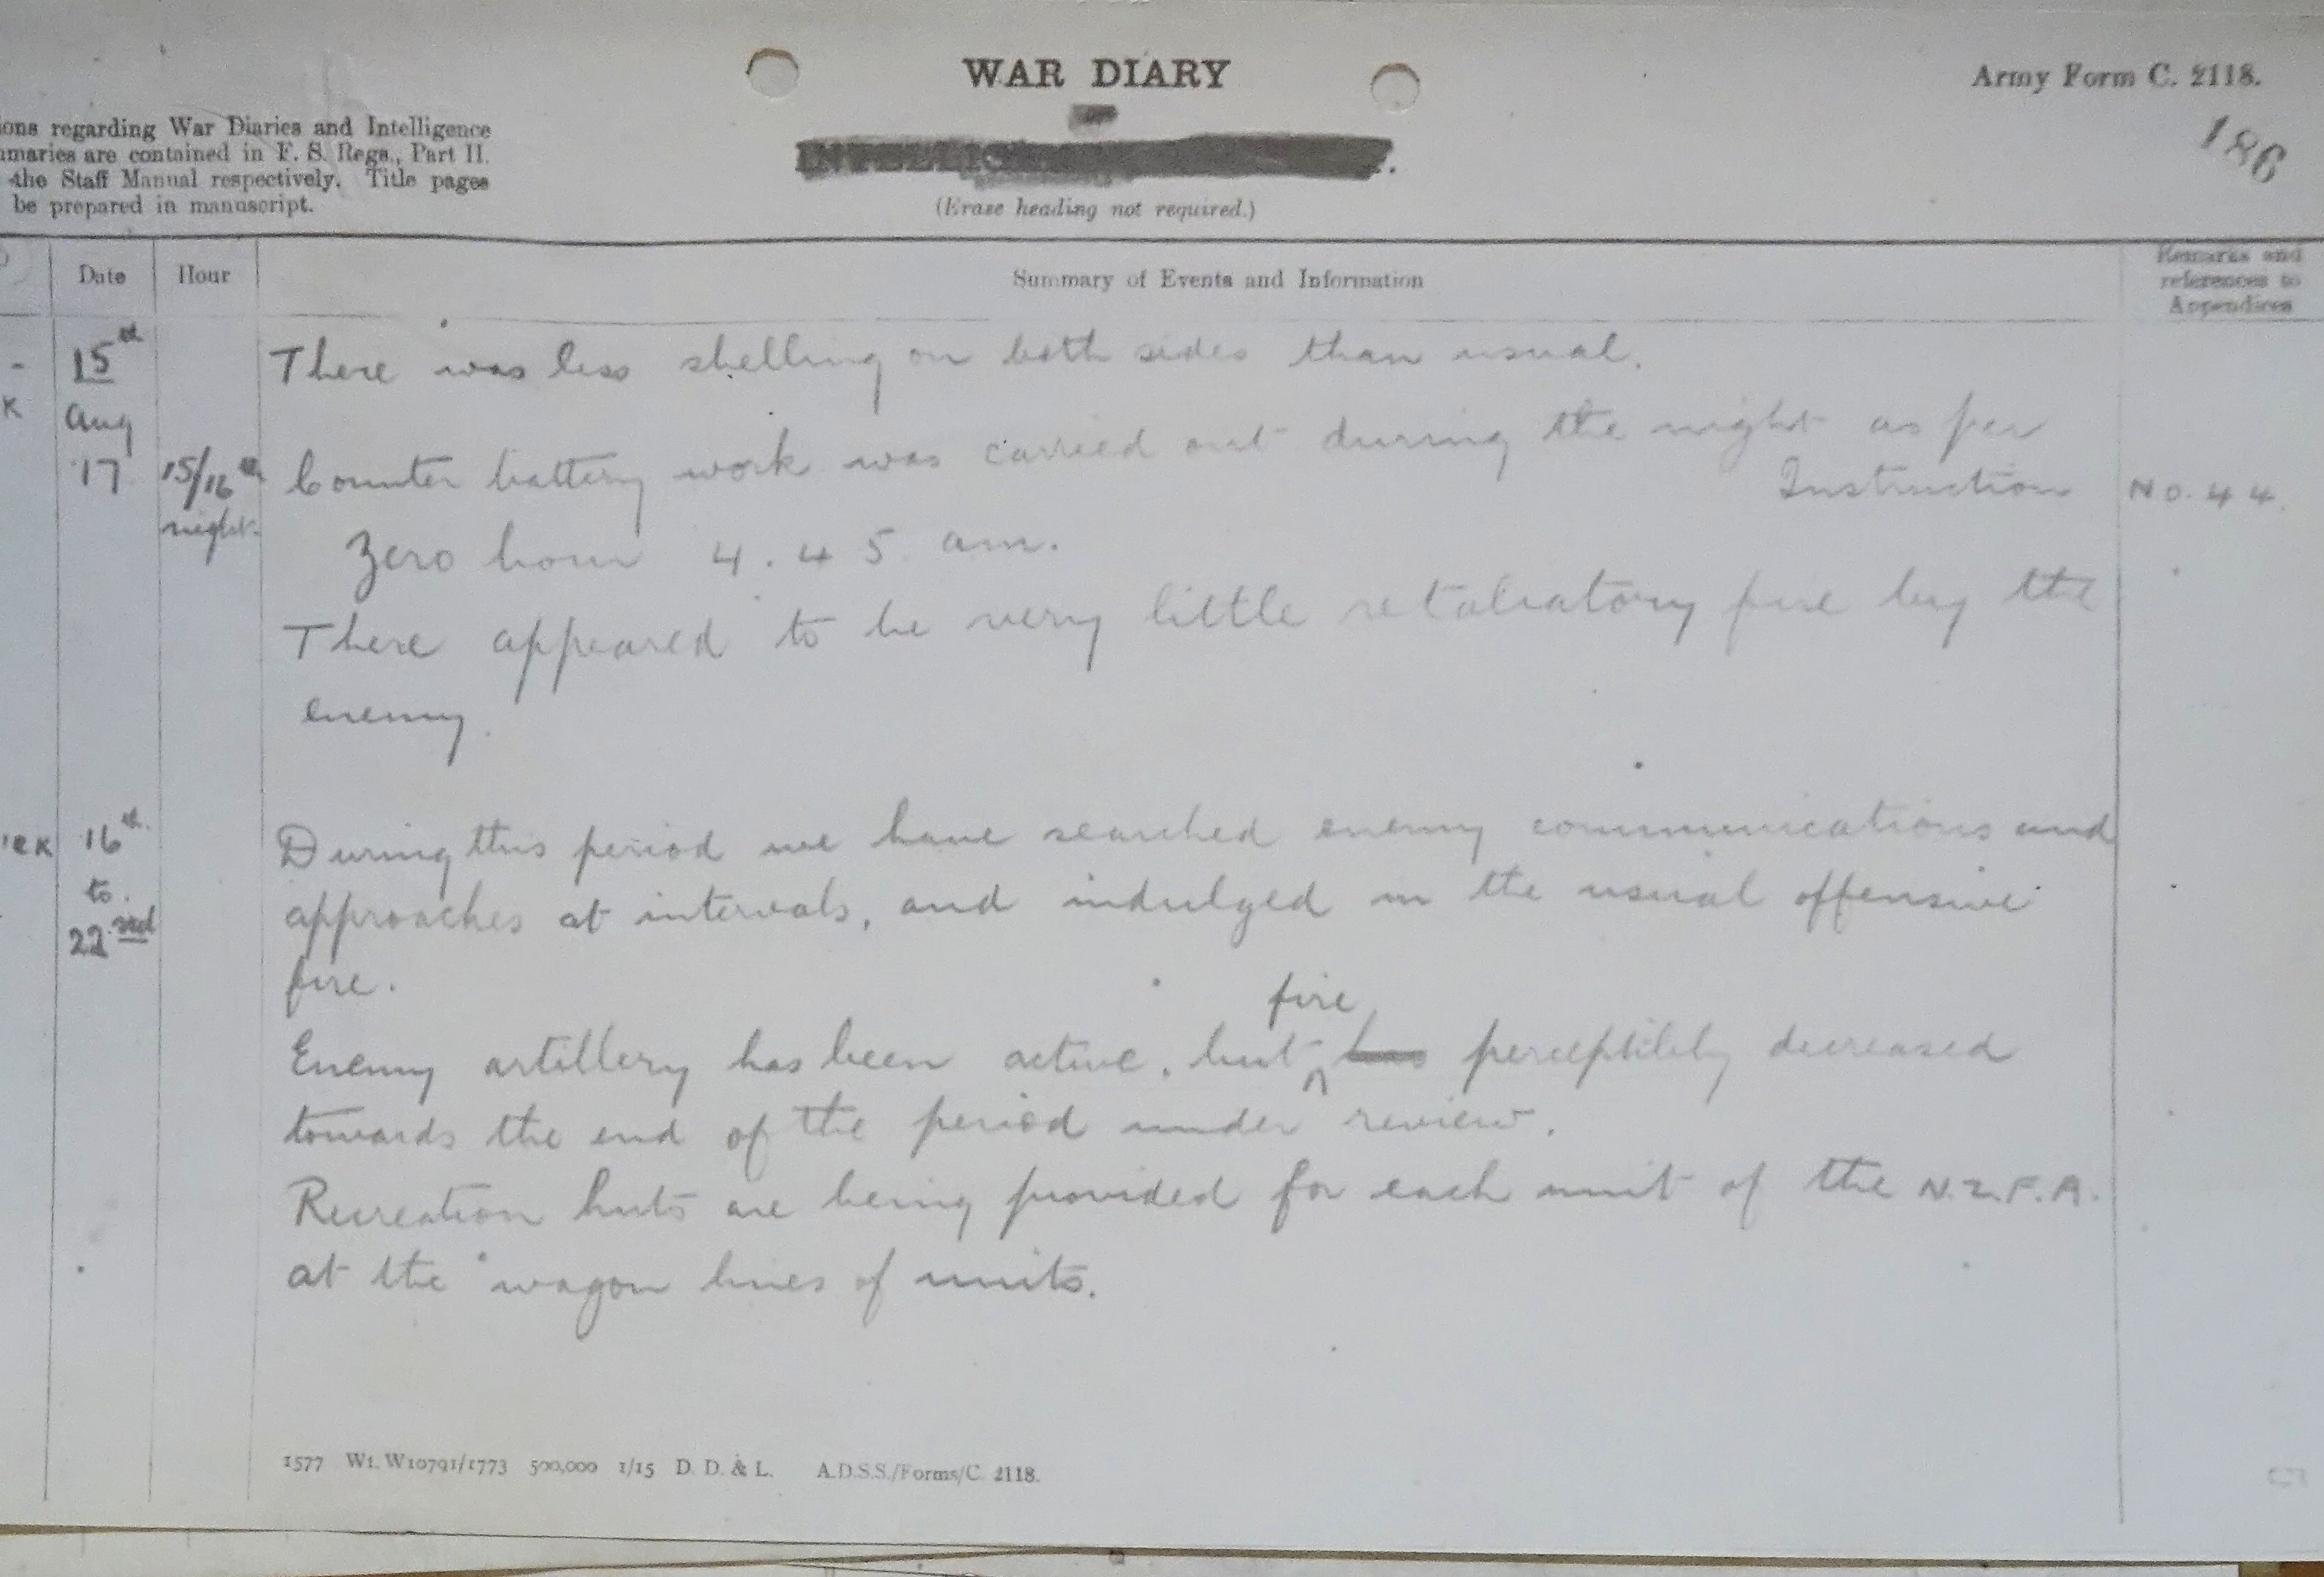 WAR DIARY
Army Form C. 2118.
or
186
ons regarding War Diaries and Intelligence
mmaries are contained in F. S. Regs., Part II.
the Staff Manual respectively. Title pages
be prepared in manuscript.
(Erase heading not required.)
Date Hour Summary of Events and Information Remarks and references to Appendices
15th There was less shelling on both sides than usual.
K Aug
17 15/16th Counter battery work was carried out during the night as per
night. Instruction No. 44.
Zero hour 4.45 am.
There appeared to be very little retaliatory fire by the
enemy.
16th During this period we have searched enemy communications and
to approaches at intervals, and indulged in the usual offensive
22nd fire.
fire
Enemy artillery has been active, but has perceptibly decreased
towards the end of the period under review.
Recreation huts are being provided for each unit of the N.Z.F.A.
at the wagon lines of units.
1577 Wt. W10791/1773 500,000 1/15 D. D. & L. A.D.S.S./Forms/C. 2118.